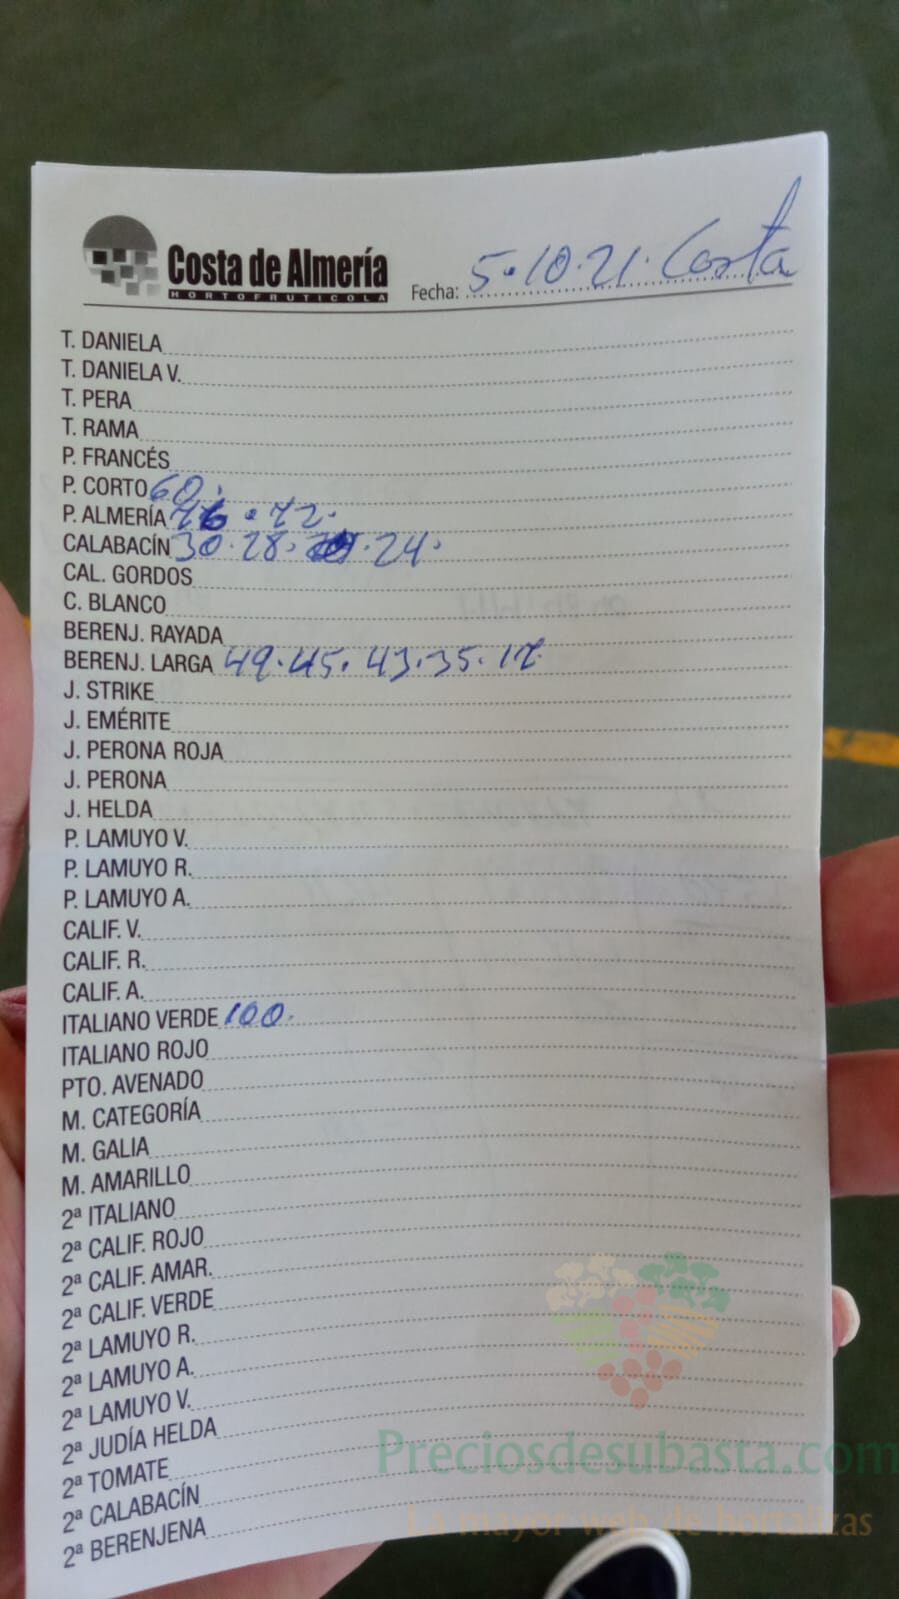 Costa de Almería
HORTOFRUTICOLA
Fecha: 5.10.21. Costa
T. DANIELA
T. DANIELA V.
T. PERA
T. RAMA
P. FRANCÉS
P. CORTO 60.
P. ALMERÍA 76.72.
CALABACÍN 30.28. .24.
CAL. GORDOS
C. BLANCO
BERENJ. RAYADA
BERENJ. LARGA 49.45.43.35.17.
J. STRIKE
J. EMÉRITE
J. PERONA ROJA
J. PERONA
J. HELDA
P. LAMUYO V.
P. LAMUYO R.
P. LAMUYO A.
CALIF. V.
CALIF. R.
CALIF. A.
ITALIANO VERDE 100.
ITALIANO ROJO
PTO. AVENADO
M. CATEGORÍA
M. GALIA
M. AMARILLO
2ª ITALIANO
2ª CALIF. ROJO
2ª CALIF. AMAR.
2ª CALIF. VERDE
2ª LAMUYO R.
2ª LAMUYO A.
2ª LAMUYO V.
2ª JUDÍA HELDA
2ª TOMATE
2ª CALABACÍN
2ª BERENJENA
Preciosdesubasta.com
La mayor web de hortalizas